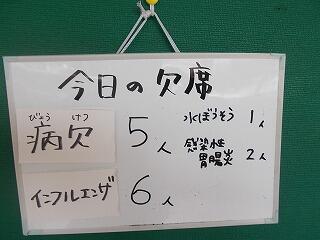 今日の欠席
びょう けつ
病欠 5人
インフルエンザ 6人
水ぼうそう 1人
感染性
胃腸炎 2人